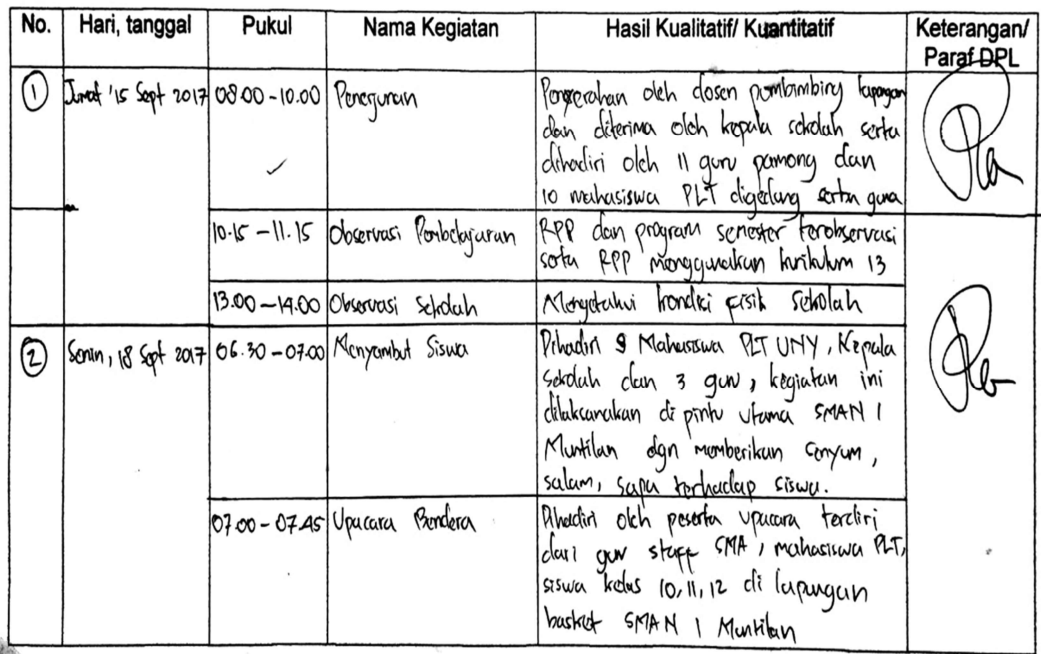 No. Hari, tanggal Pukul Nama Kegiatan Hasil Kualitatif/ Kuantitatif Keterangan/
Paraf DPL
1 Jumat '15 Sept 2017 08.00 - 10.00 Penerjunan Penyerahan oleh dosen pembimbing lapangan
dan diterima oleh kepala sekolah serta
dihadiri oleh 11 guru pamong dan
10 mahasiswa PLT digedung serba guna
10.15 - 11.15 Observasi Pembelajaran RPP dan program semester terobservasi
serta RPP menggunakan kurikulum 13
13.00 - 14.00 Observasi Sekolah Mengetahui kondisi fisik sekolah
2 Senin, 18 Sept 2017 06.30 - 07.00 Menyambut Siswa Dihadiri 9 Mahasiswa PLT UNY, Kepala
Sekolah dan 3 guru, kegiatan ini
dilaksanakan di pintu utama SMAN 1
Muntilan dgn memberikan senyum,
salam, sapa terhadap siswa.
07.00 - 07.45 Upacara Bendera Dihadiri oleh peserta upacara terdiri
dari guru staff SMA, mahasiswa PLT,
siswa kelas 10, 11, 12 di lapangan
basket SMAN 1 Muntilan